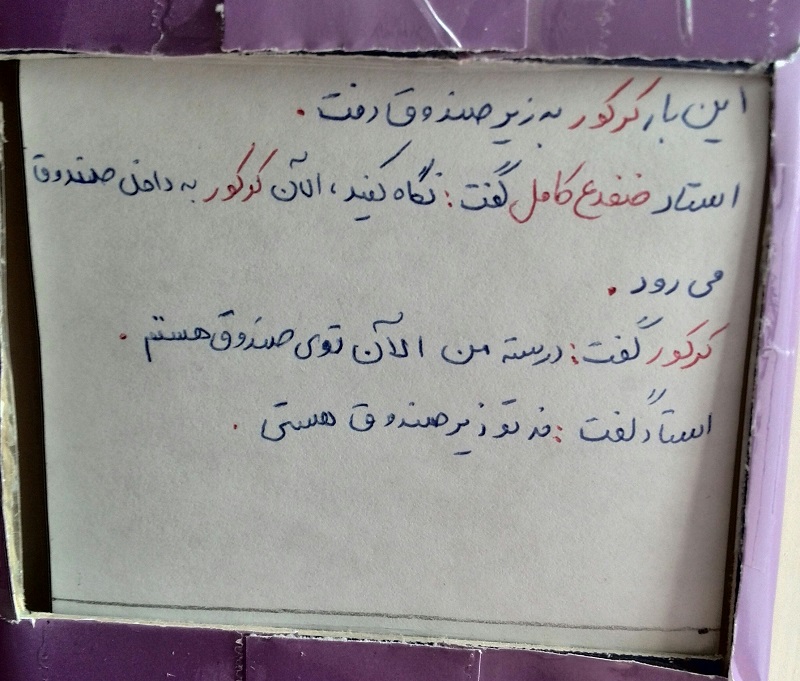 این بار کرکور به زیر صندوق رفت .
استاد ضفدع کامل گفت : نگاه کنید ، الآن کرکور به داخل صندوق
می رود .
کرکور گفت : درسته من الآن توی صندوق هستم .
استاد گفت : نه تو زیر صندوق هستی .